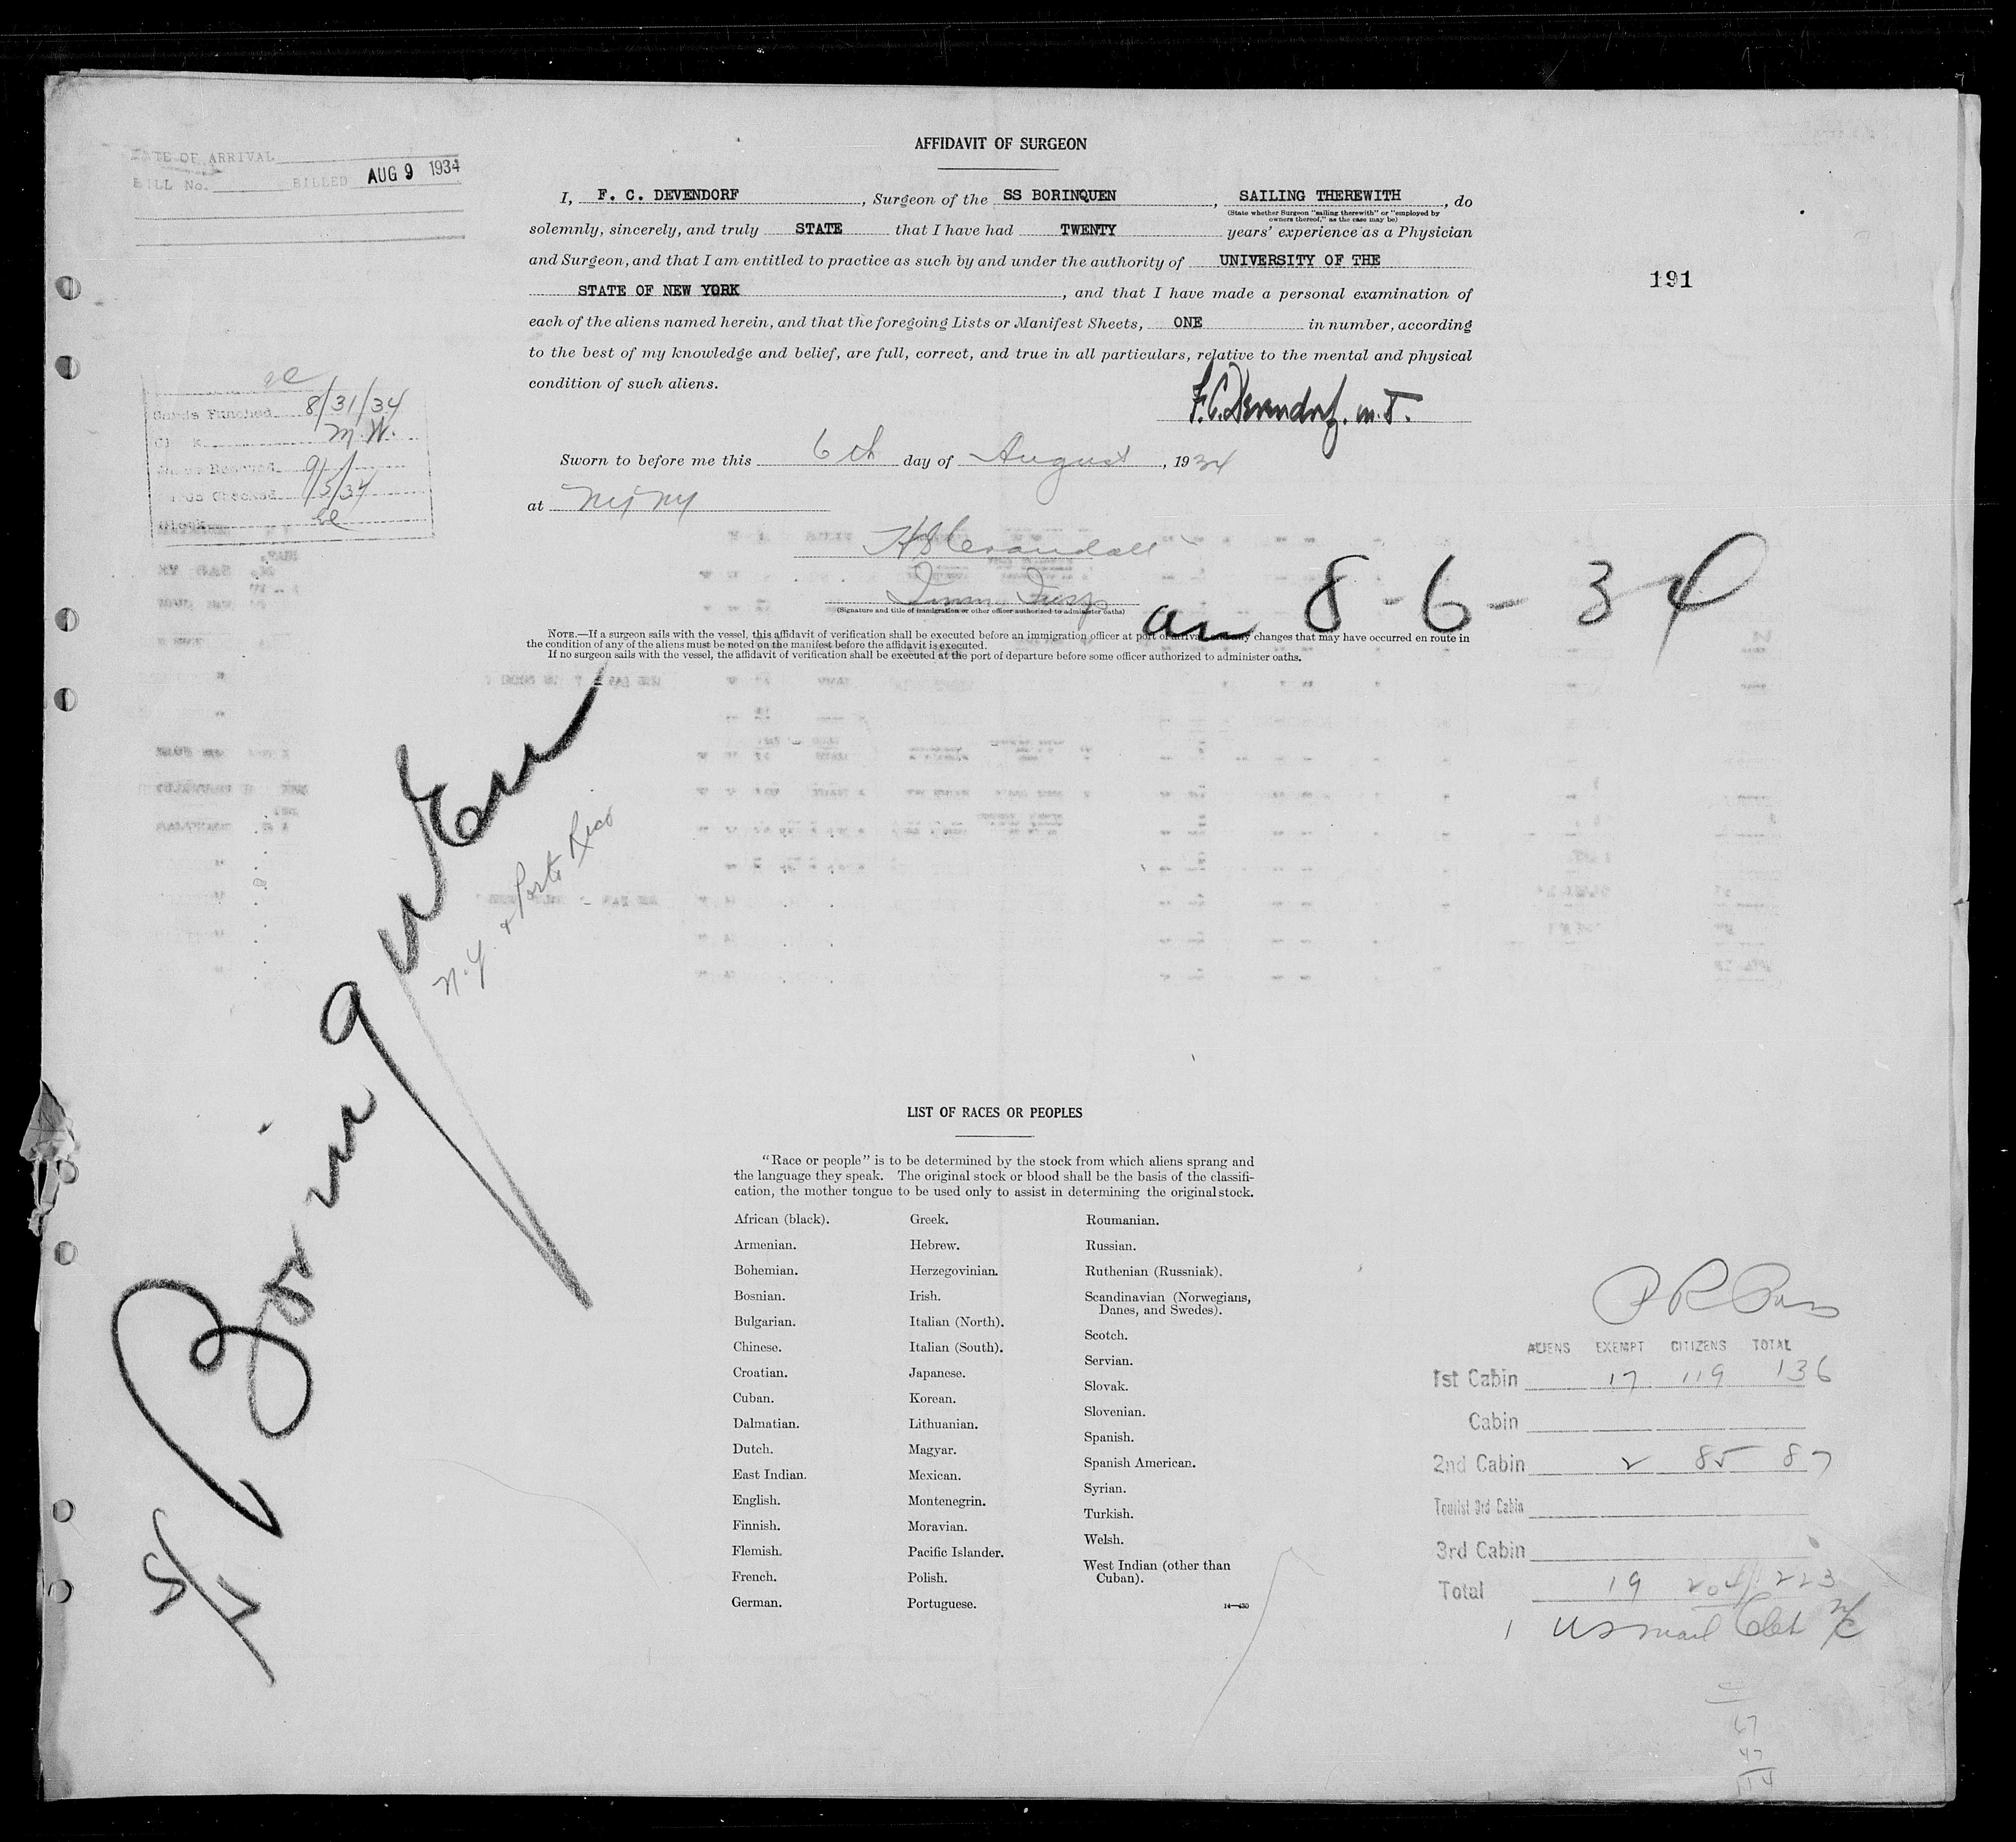 AFFIDAVIT OF SURGEON
DATE OF ARRIVAL
BILL No. BILLED AUG 9 1934
I, F. C. DEVENDORF, Surgeon of the SS BORINQUEN, SAILING THEREWITH, do
(State whether Surgeon "sailing therewith" or "employed by
owners thereof," as the case may be)
solemnly, sincerely, and truly STATE that I have had TWENTY years' experience as a Physician
and Surgeon, and that I am entitled to practice as such by and under the authority of UNIVERSITY OF THE
STATE OF NEW YORK, and that I have made a personal examination of
191
each of the aliens named herein, and that the foregoing Lists or Manifest Sheets, ONE in number, according
to the best of my knowledge and belief, are full, correct, and true in all particulars, relative to the mental and physical
condition of such aliens.
F.C. Devendorf. M.D.
Cards Punched 8/31/34
M.W.
9/5/34
Checked
Clerk
Sworn to before me this 6th day of August, 1934
at NY NY
H S Crandall
Immn Insp
(Signature and title of immigration or other officer authorized to administer oaths)
arr 8-6-34
NOTE.—If a surgeon sails with the vessel, this affidavit of verification shall be executed before an immigration officer at port of arrival and any changes that may have occurred en route in
the condition of any of the aliens must be noted on the manifest before the affidavit is executed.
If no surgeon sails with the vessel, the affidavit of verification shall be executed at the port of departure before some officer authorized to administer oaths.
SS Borinquen
N.Y. & Porto Rico
LIST OF RACES OR PEOPLES
"Race or people" is to be determined by the stock from which aliens sprang and
the language they speak. The original stock or blood shall be the basis of the classifi-
cation, the mother tongue to be used only to assist in determining the original stock.
African (black).
Armenian.
Bohemian.
Bosnian.
Bulgarian.
Chinese.
Croatian.
Cuban.
Dalmatian.
Dutch.
East Indian.
English.
Finnish.
Flemish.
French.
German.
Greek.
Hebrew.
Herzegovinian.
Irish.
Italian (North).
Italian (South).
Japanese.
Korean.
Lithuanian.
Magyar.
Mexican.
Montenegrin.
Moravian.
Pacific Islander.
Polish.
Portuguese.
Roumanian.
Russian.
Ruthenian (Russniak).
Scandinavian (Norwegians,
Danes, and Swedes).
Scotch.
Servian.
Slovak.
Slovenian.
Spanish.
Spanish American.
Syrian.
Turkish.
Welsh.
West Indian (other than
Cuban).
14—430
ALIENS EXEMPT CITIZENS TOTAL
1st Cabin 17 119 136
Cabin
2nd Cabin 2 85 87
Tourist 3rd Cabin
3rd Cabin
Total 19 204 223
1 US mail
67
47
114